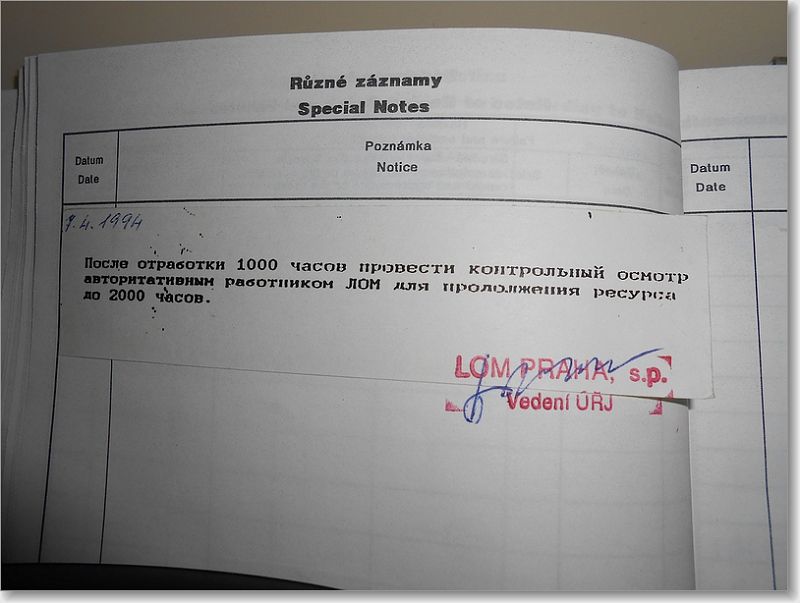 Různé záznamy
Special Notes
Datum
Date
Poznámka
Notice
Datum
Date
7.4.1994
После отработки 1000 часов провести контрольный осмотр
авторитативным работником ЛОМ для продолжения ресурса
до 2000 часов.
LOM PRAHA, s.p.
Vedení ÚŘJ